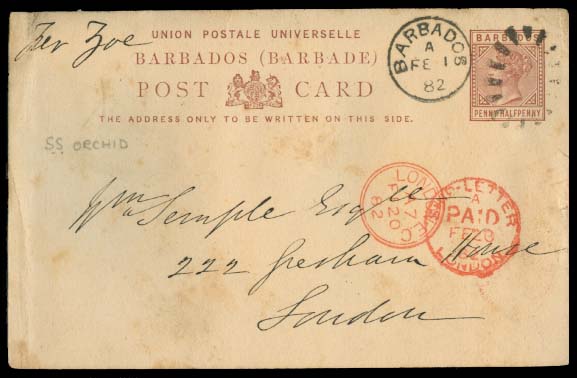 Per Zoe
UNION POSTALE UNIVERSELLE
BARBADOS (BARBADE)
POST CARD
THE ADDRESS ONLY TO BE WRITTEN ON THIS SIDE.
BARBADOS
A
FE 1
82
BARBADOS
PENNY HALFPENNY
SS ORCHID
Wm Semple Esqre
222 Gresham House
London
LONDON E.C
7
FE 20
82
SHIP-LETTER
A
PAID
FE 20
LONDON